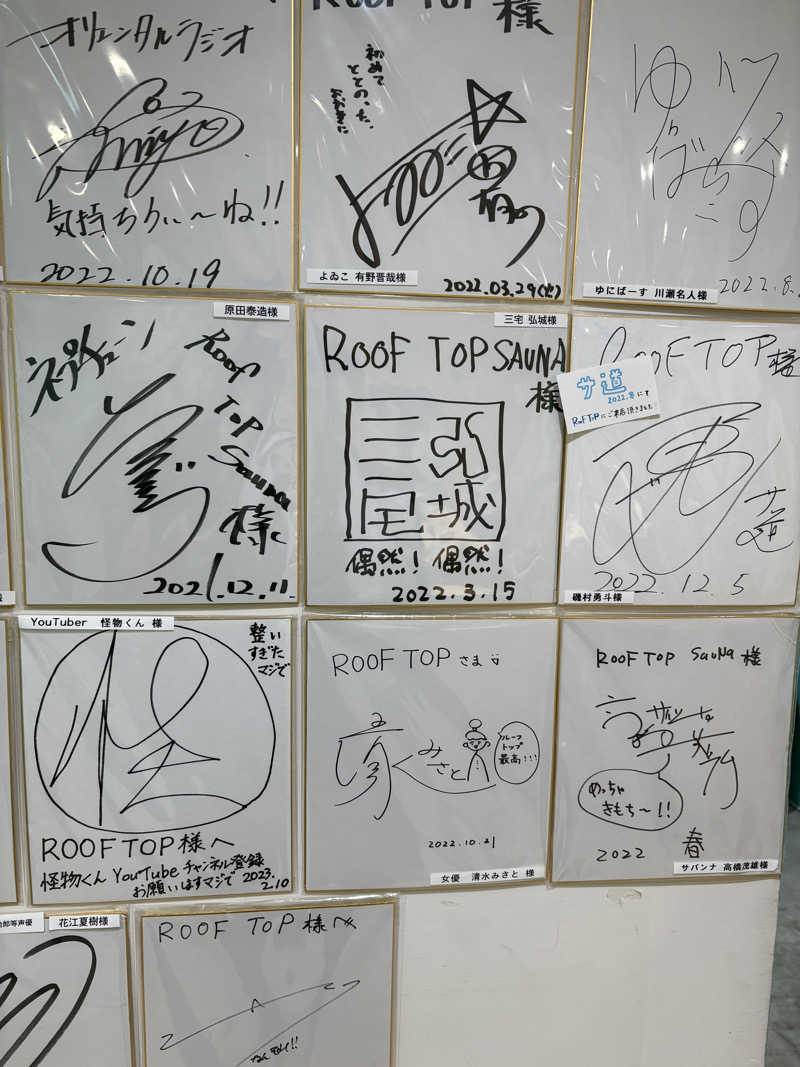 オリエンタルラジオ
気持ちいぃ〜ね!!
2022.10.19
ROOF TOP 様
初めて
ととのった。
よゐこ 有野晋哉様
2022.03.29(火)
ゆにばーす 川瀬名人様
2022.8.
原田泰造様
ネプチューン
Roof
TOP
Sauna
様
2021.12.11
三宅 弘城様
ROOF TOP SAUNA
様
三宅
弘城
偶然!偶然!
2022.3.15
ROOF TOP 様
サ道
2022.冬にて
ROOFTOPにご来店頂きました!
サ道
2022.12.5
磯村勇斗様
YouTuber 怪物くん 様
整い
すぎた
マジで
怪
ROOFTOP様へ
怪物くんYouTubeチャンネル登録
お願いしますマジで 2023.
2.10
ROOF TOP さま
みさと
ルーフ
トップ
最高!!!
2022.10.21
女優 清水みさと 様
ROOF TOP SauNa 様
めっちゃ
きもち〜!!
2022 春
サバンナ 高橋茂雄様
郎等声優
花江夏樹様
ROOF TOP 様へ